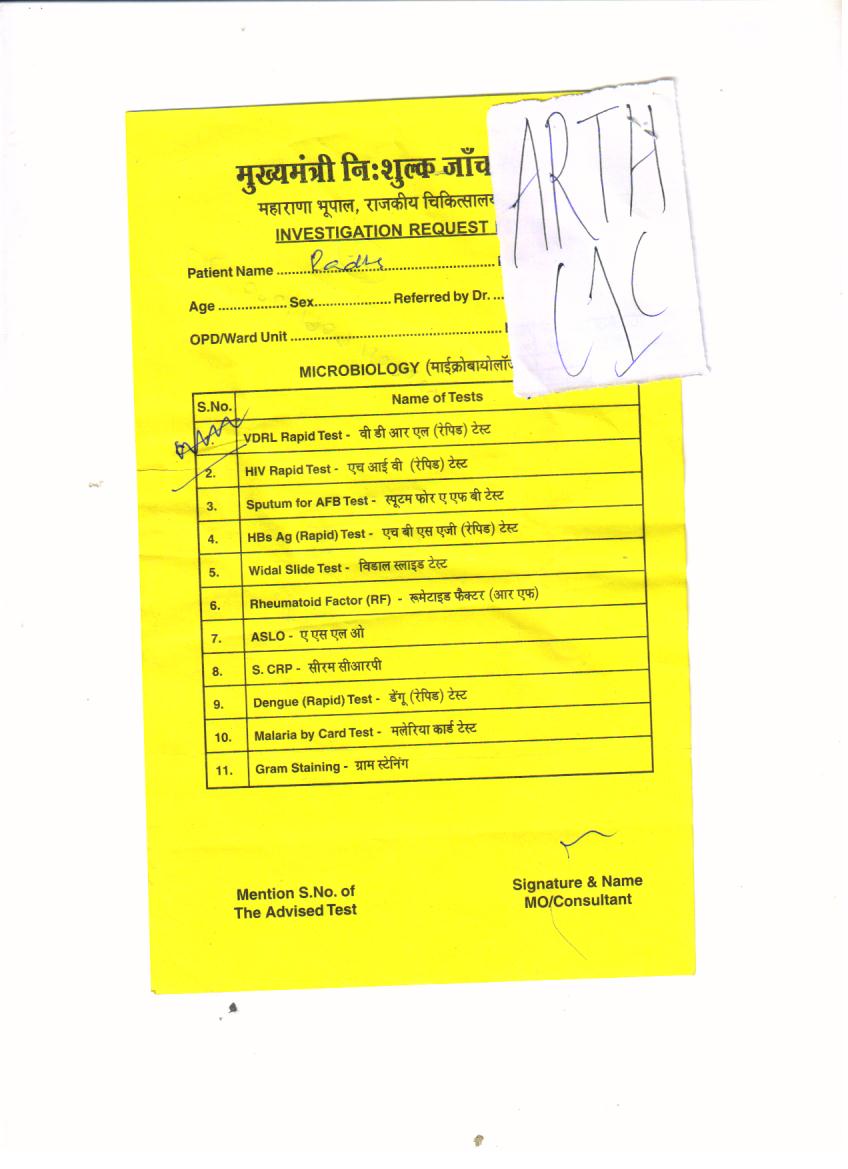 मुख्यमंत्री निःशुल्क जाँच
महाराणा भूपाल, राजकीय चिकित्सालय
INVESTIGATION REQUEST
ARTH
CIC
Patient Name ..........................................................
Age .................. Sex.................... Referred by Dr. ...
OPD/Ward Unit .......................................................
MICROBIOLOGY (माईक्रोबायोलॉज
S.No. Name of Tests
VDRL Rapid Test - वी डी आर एल (रेपिड) टेस्ट
2. HIV Rapid Test - एच आई वी (रेपिड) टेस्ट
3. Sputum for AFB Test - स्पूटम फोर ए एफ बी टेस्ट
4. HBs Ag (Rapid) Test - एच बी एस एजी (रेपिड) टेस्ट
5. Widal Slide Test - विडाल स्लाइड टेस्ट
6. Rheumatoid Factor (RF) - रूमेटाइड फैक्टर (आर एफ)
7. ASLO - ए एस एल ओ
8. S. CRP - सीरम सीआरपी
9. Dengue (Rapid) Test - डेंगू (रेपिड) टेस्ट
10. Malaria by Card Test - मलेरिया कार्ड टेस्ट
11. Gram Staining - ग्राम स्टेनिंग
Mention S.No. of
The Advised Test
Signature & Name
MO/Consultant